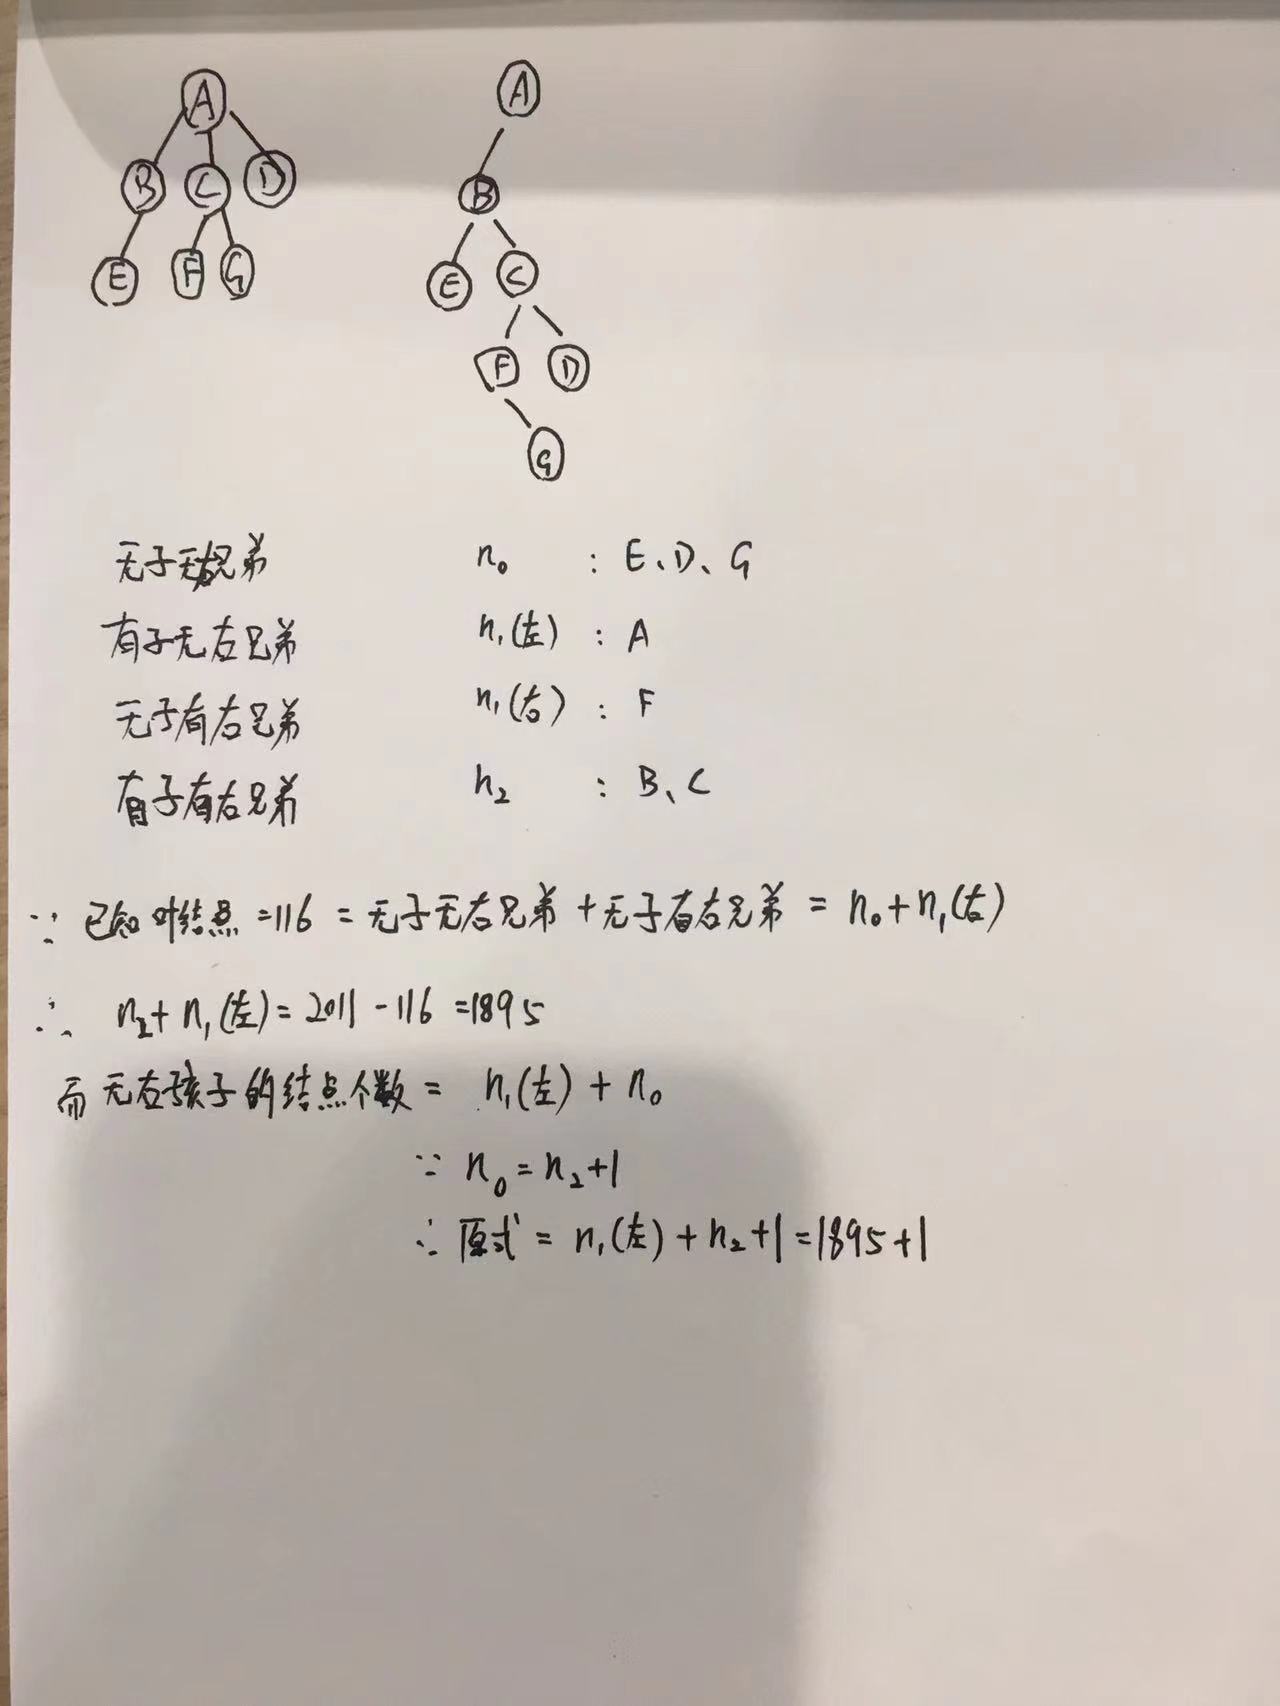 A
B C D
E F G
A
B
E C
F D
G
无子无右兄弟 n₀ : E、D、G
有子无右兄弟 n₁(左) : A
无子有右兄弟 n₁(右) : F
有子有右兄弟 n₂ : B、C
∵ 已知叶结点=116 = 无子无右兄弟+无子有右兄弟 = n₀+n₁(右)
∴ n₂+n₁(左)=2011-116=1895
而无右孩子的结点个数= n₁(左)+n₀
∵ n₀=n₂+1
∴ 原式= n₁(左)+n₂+1=1895+1